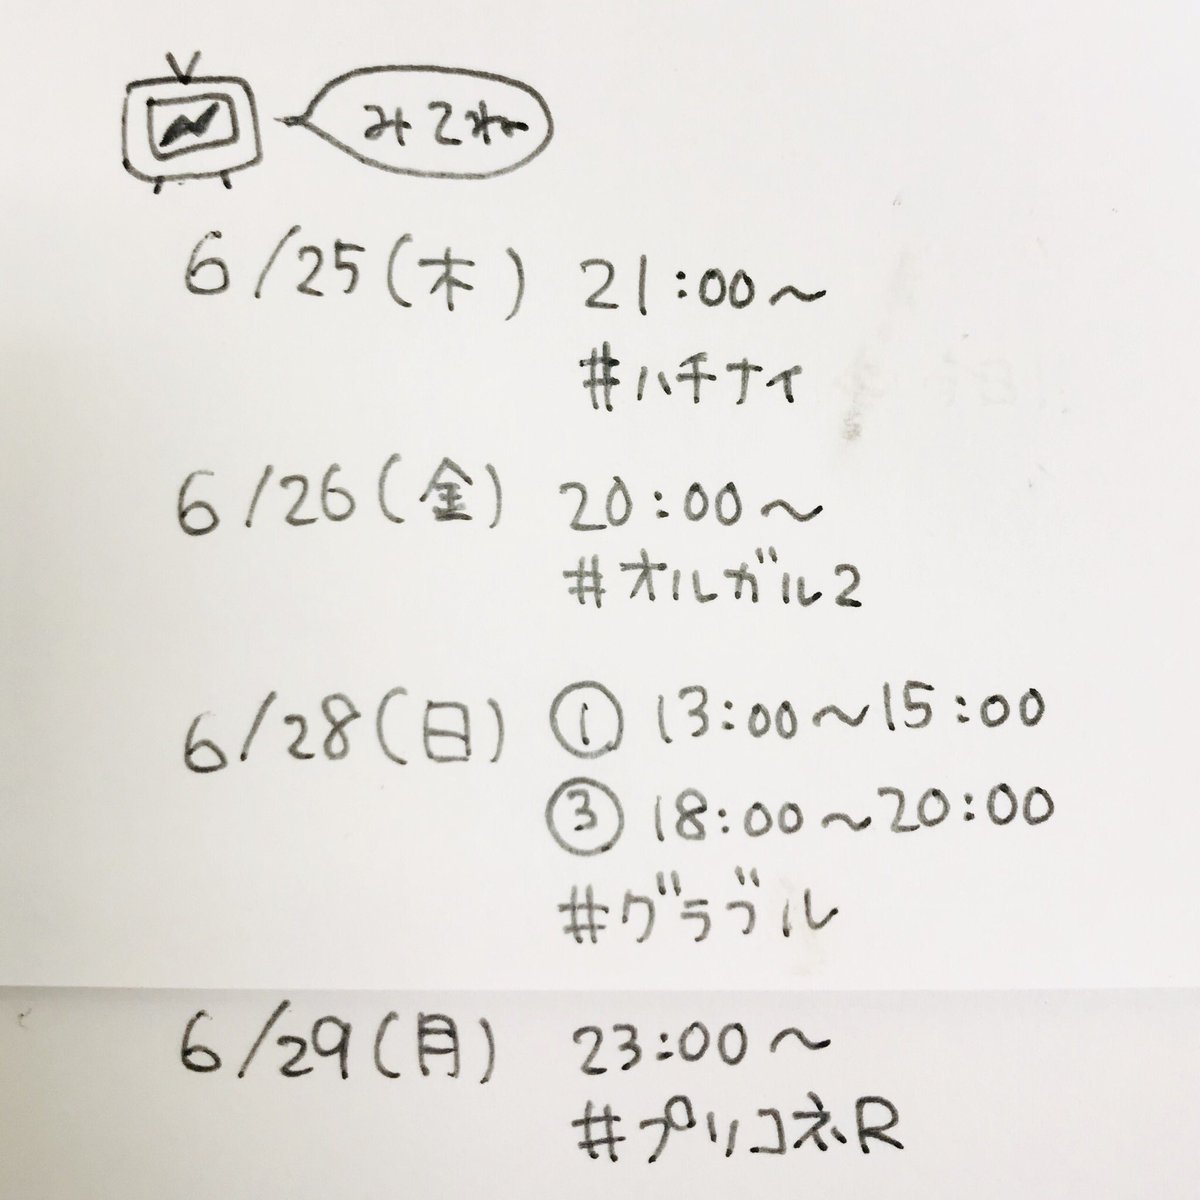 みてね
6/25(木) 21:00〜
#ハチナイ
6/26(金) 20:00〜
#オルガル2
6/28(日) ① 13:00〜15:00
③ 18:00〜20:00
#グラブル
6/29(月) 23:00〜
#プリコネR